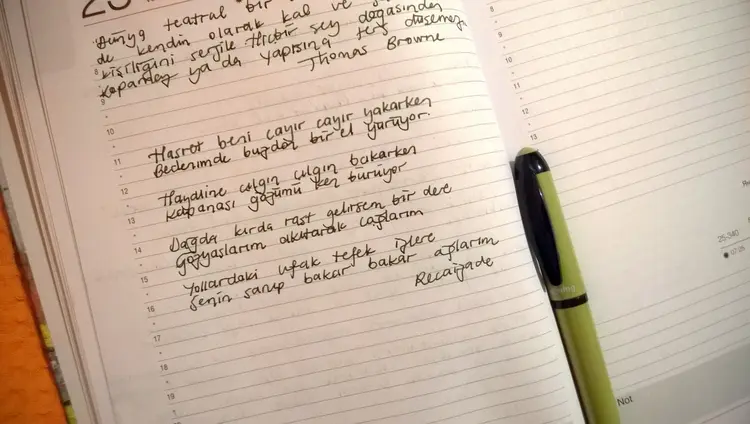 25
Dünya teatral bir
de kendin olarak kal ve
kişiliğini sergile Hiçbir şey doğasından
kopamaz ya da yapısına ters düşemez
Thomas Browne
Hasret beni cayır cayır yakarken
Bedenimde buzdan bir el yürüyor.
Hayaline çılgın çılgın bakarken
Kapanası gözümü kan bürüyor
Dağda kırda rast gelirsem bir dere
Gözyaşlarım akıtarak çağlarım
Yollardaki ufak tefek izlere
Senin sanıp bakar bakar ağlarım
Recaizade
8
9
10
11
12
13
14
15
16
17
18
19
8
9
10
11
12
13
25-340
07:05
Not